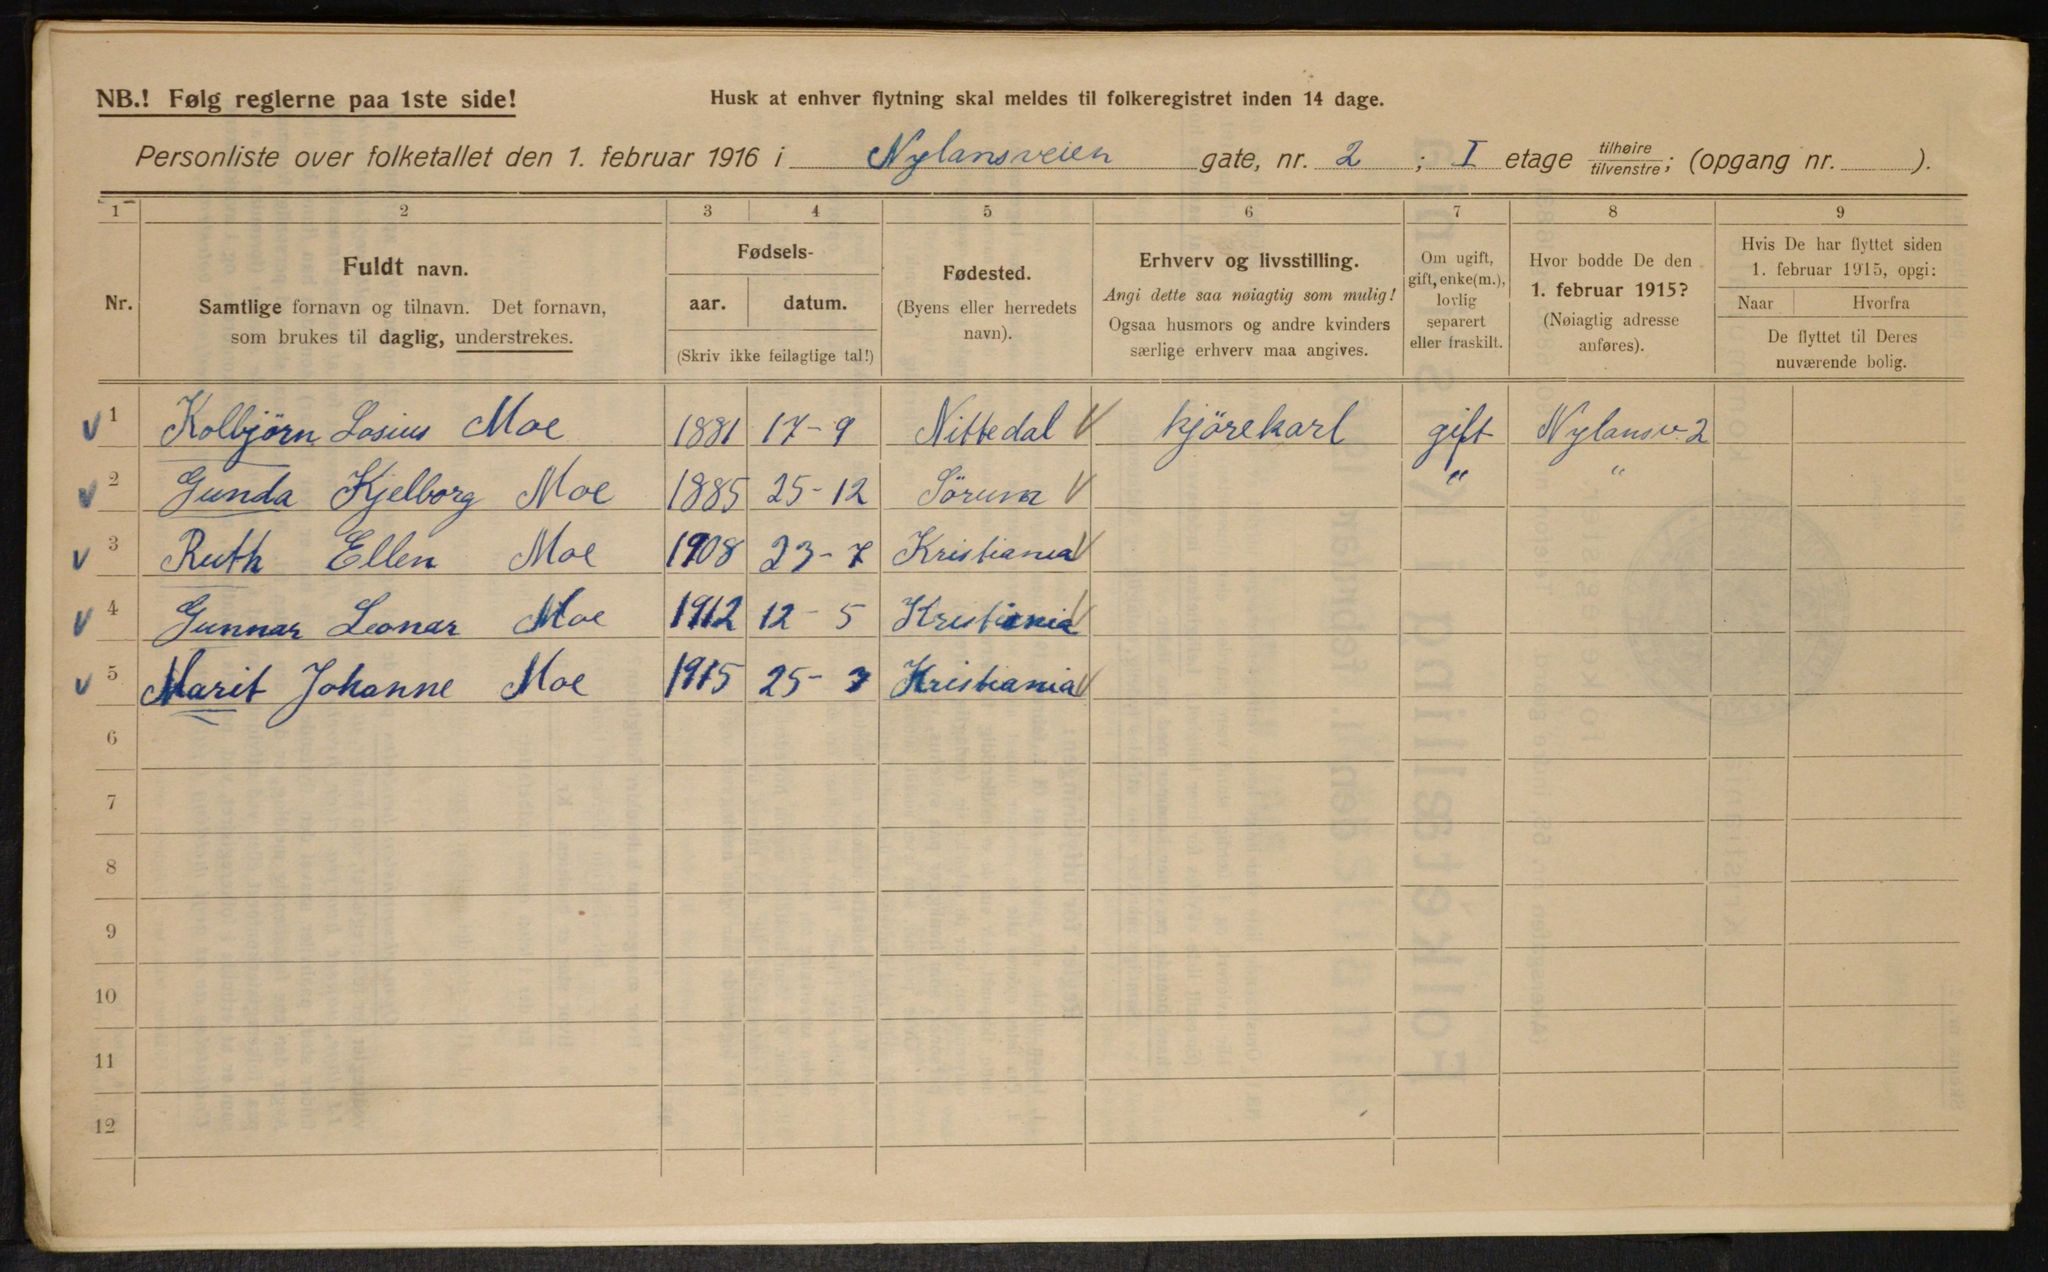 NB.! Følg reglerne paa 1ste side!
Husk at enhver flytning skal meldes til folkeregistret inden 14 dage.
Personliste over folketallet den 1. februar 1916 i Nylansveien gate, nr. 2 ; I etage tilhøire/tilvenstre; (opgang nr. ).
1 2 3 4 5 6 7 8 9
Nr.
Fuldt navn.
Samtlige fornavn og tilnavn. Det fornavn,
som brukes til daglig, understrekes.
Fødsels-
aar. datum.
(Skriv ikke feilagtige tal!)
Fødested.
(Byens eller herredets
navn).
Erhverv og livsstilling.
Angi dette saa nøiagtig som mulig!
Ogsaa husmors og andre kvinders
særlige erhverv maa angives.
Om ugift,
gift, enke(m.),
lovlig
separert
eller fraskilt.
Hvor bodde De den
1. februar 1915?
(Nøiagtig adresse
anføres).
Hvis De har flyttet siden
1. februar 1915, opgi:
Naar Hvorfra
De flyttet til Deres
nuværende bolig.
1 Kolbjørn Losius Moe 1881 17-9 Nittedal kjörekarl gift Nylansv. 2
2 Gunda Kjelborg Moe 1885 25-12 Sörum " "
3 Ruth Ellen Moe 1908 23-7 Kristiania
4 Gunnar Leonar Moe 1912 12-5 Kristiania
5 Marit Johanne Moe 1915 25-3 Kristiania
6
7
8
9
10
11
12